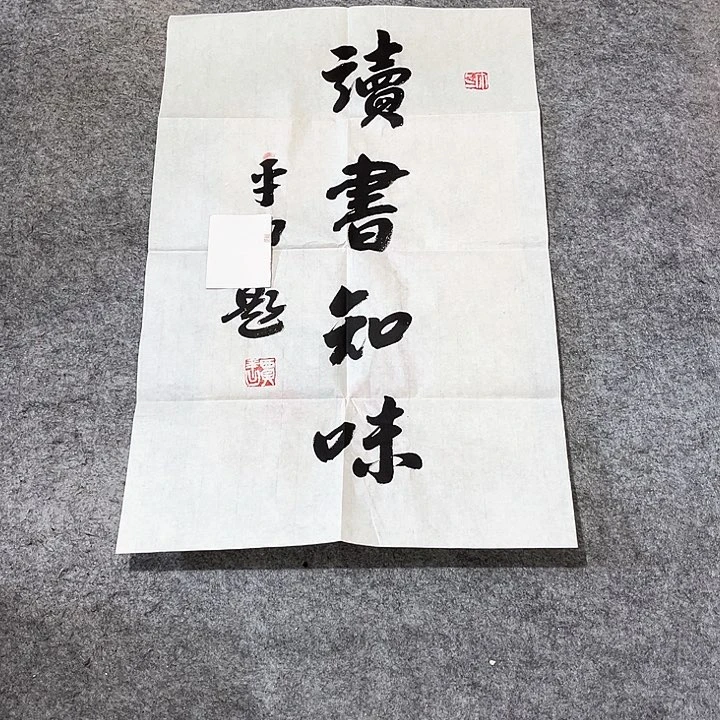 讀書知味
平
題